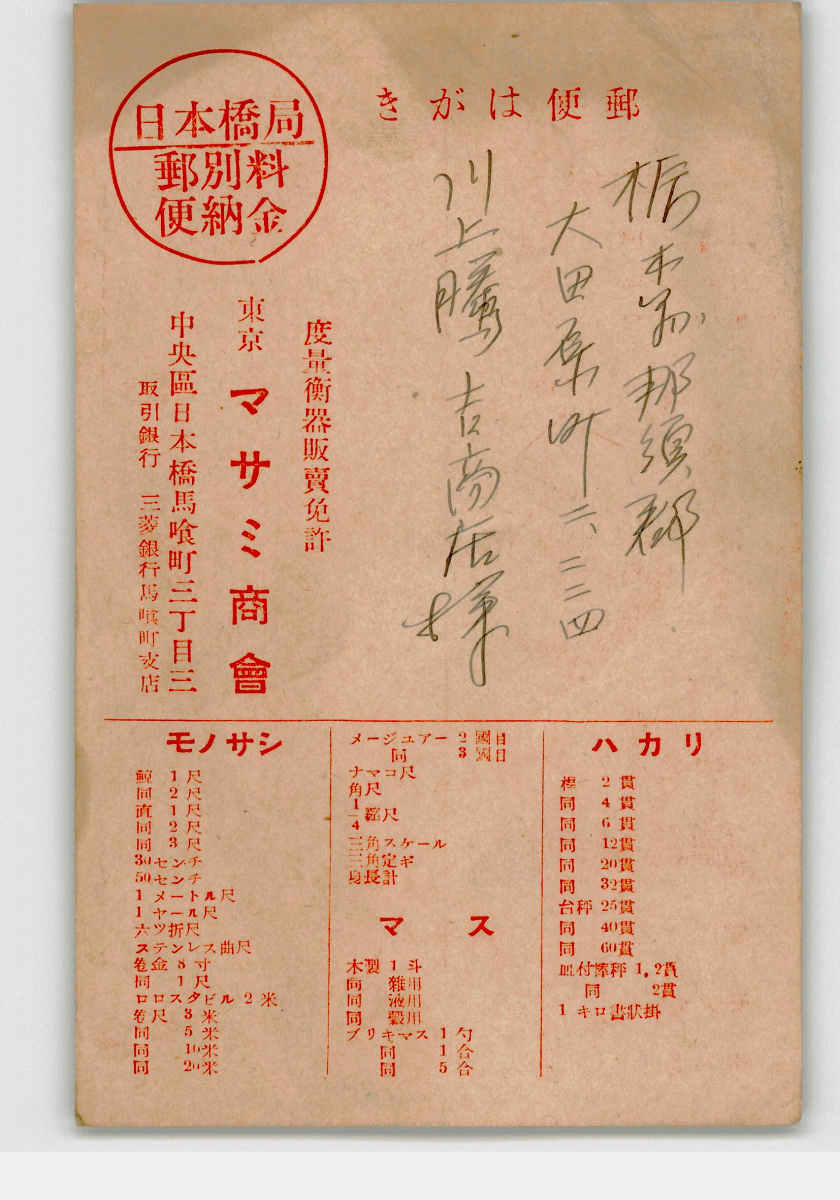 郵便はがき
日本橋局
料金別納郵便
栃木縣那須郡
大田原町二、二二四
川上勝吉商店様
度量衡器販賣免許
東京 マサミ商會
中央區日本橋馬喰町三丁目三
取引銀行 三菱銀行馬喰町支店
ハカリ
2貫
同 4貫
同 6貫
同 12貫
同 20貫
同 32貫
台秤 25貫
同 40貫
同 60貫
皿付棒秤 1,2貫
同 2貫
1キロ書狀掛
メージュアー 2 國目
同 3 國目
ナマコ尺
角尺
1/4 縮尺
三角スケール
三角定ギ
身長計
マス
木製 1 斗
同 雜用
同 液用
同 穀用
ブリキマス 1 勺
同 1 合
同 5 合
モノサシ
鯨 1 尺
同 2 尺
直 1 尺
同 2 尺
同 3 尺
30センチ
50センチ
1 メートル尺
1 ヤール尺
六ツ折尺
ステンレス曲尺
卷金 8 寸
同 1 尺
ロロスタビル 2 米
卷尺 3 米
同 5 米
同 10米
同 20米